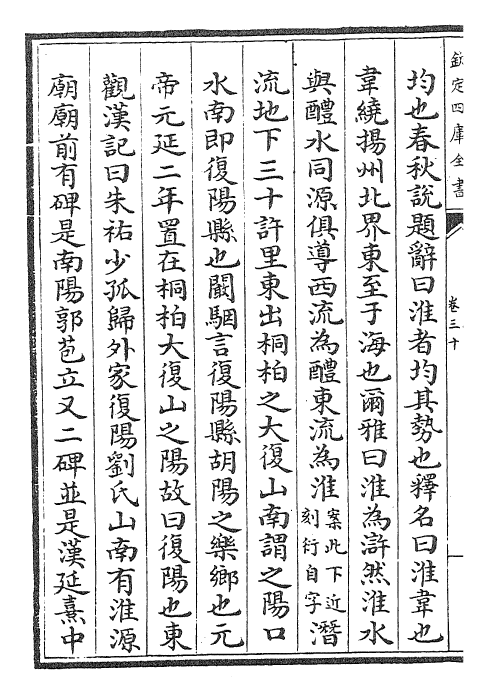 欽定四庫全書
卷三十
均也春秋說題辭曰淮者均其勢也釋名曰淮韋也
韋繞揚州北界東至于海也爾雅曰淮為滸然淮水
與醴水同源俱導西流為醴東流為淮案此下近刻衍自字潛
流地下三十許里東出桐柏之大復山南謂之陽口
水南即復陽縣也闞駰言復陽縣胡陽之樂鄉也元
帝元延二年置在桐柏大復山之陽故曰復陽也東
觀漢記曰朱祐少孤歸外家復陽劉氏山南有淮源
廟廟前有碑是南陽郭苞立又二碑並是漢延熹中